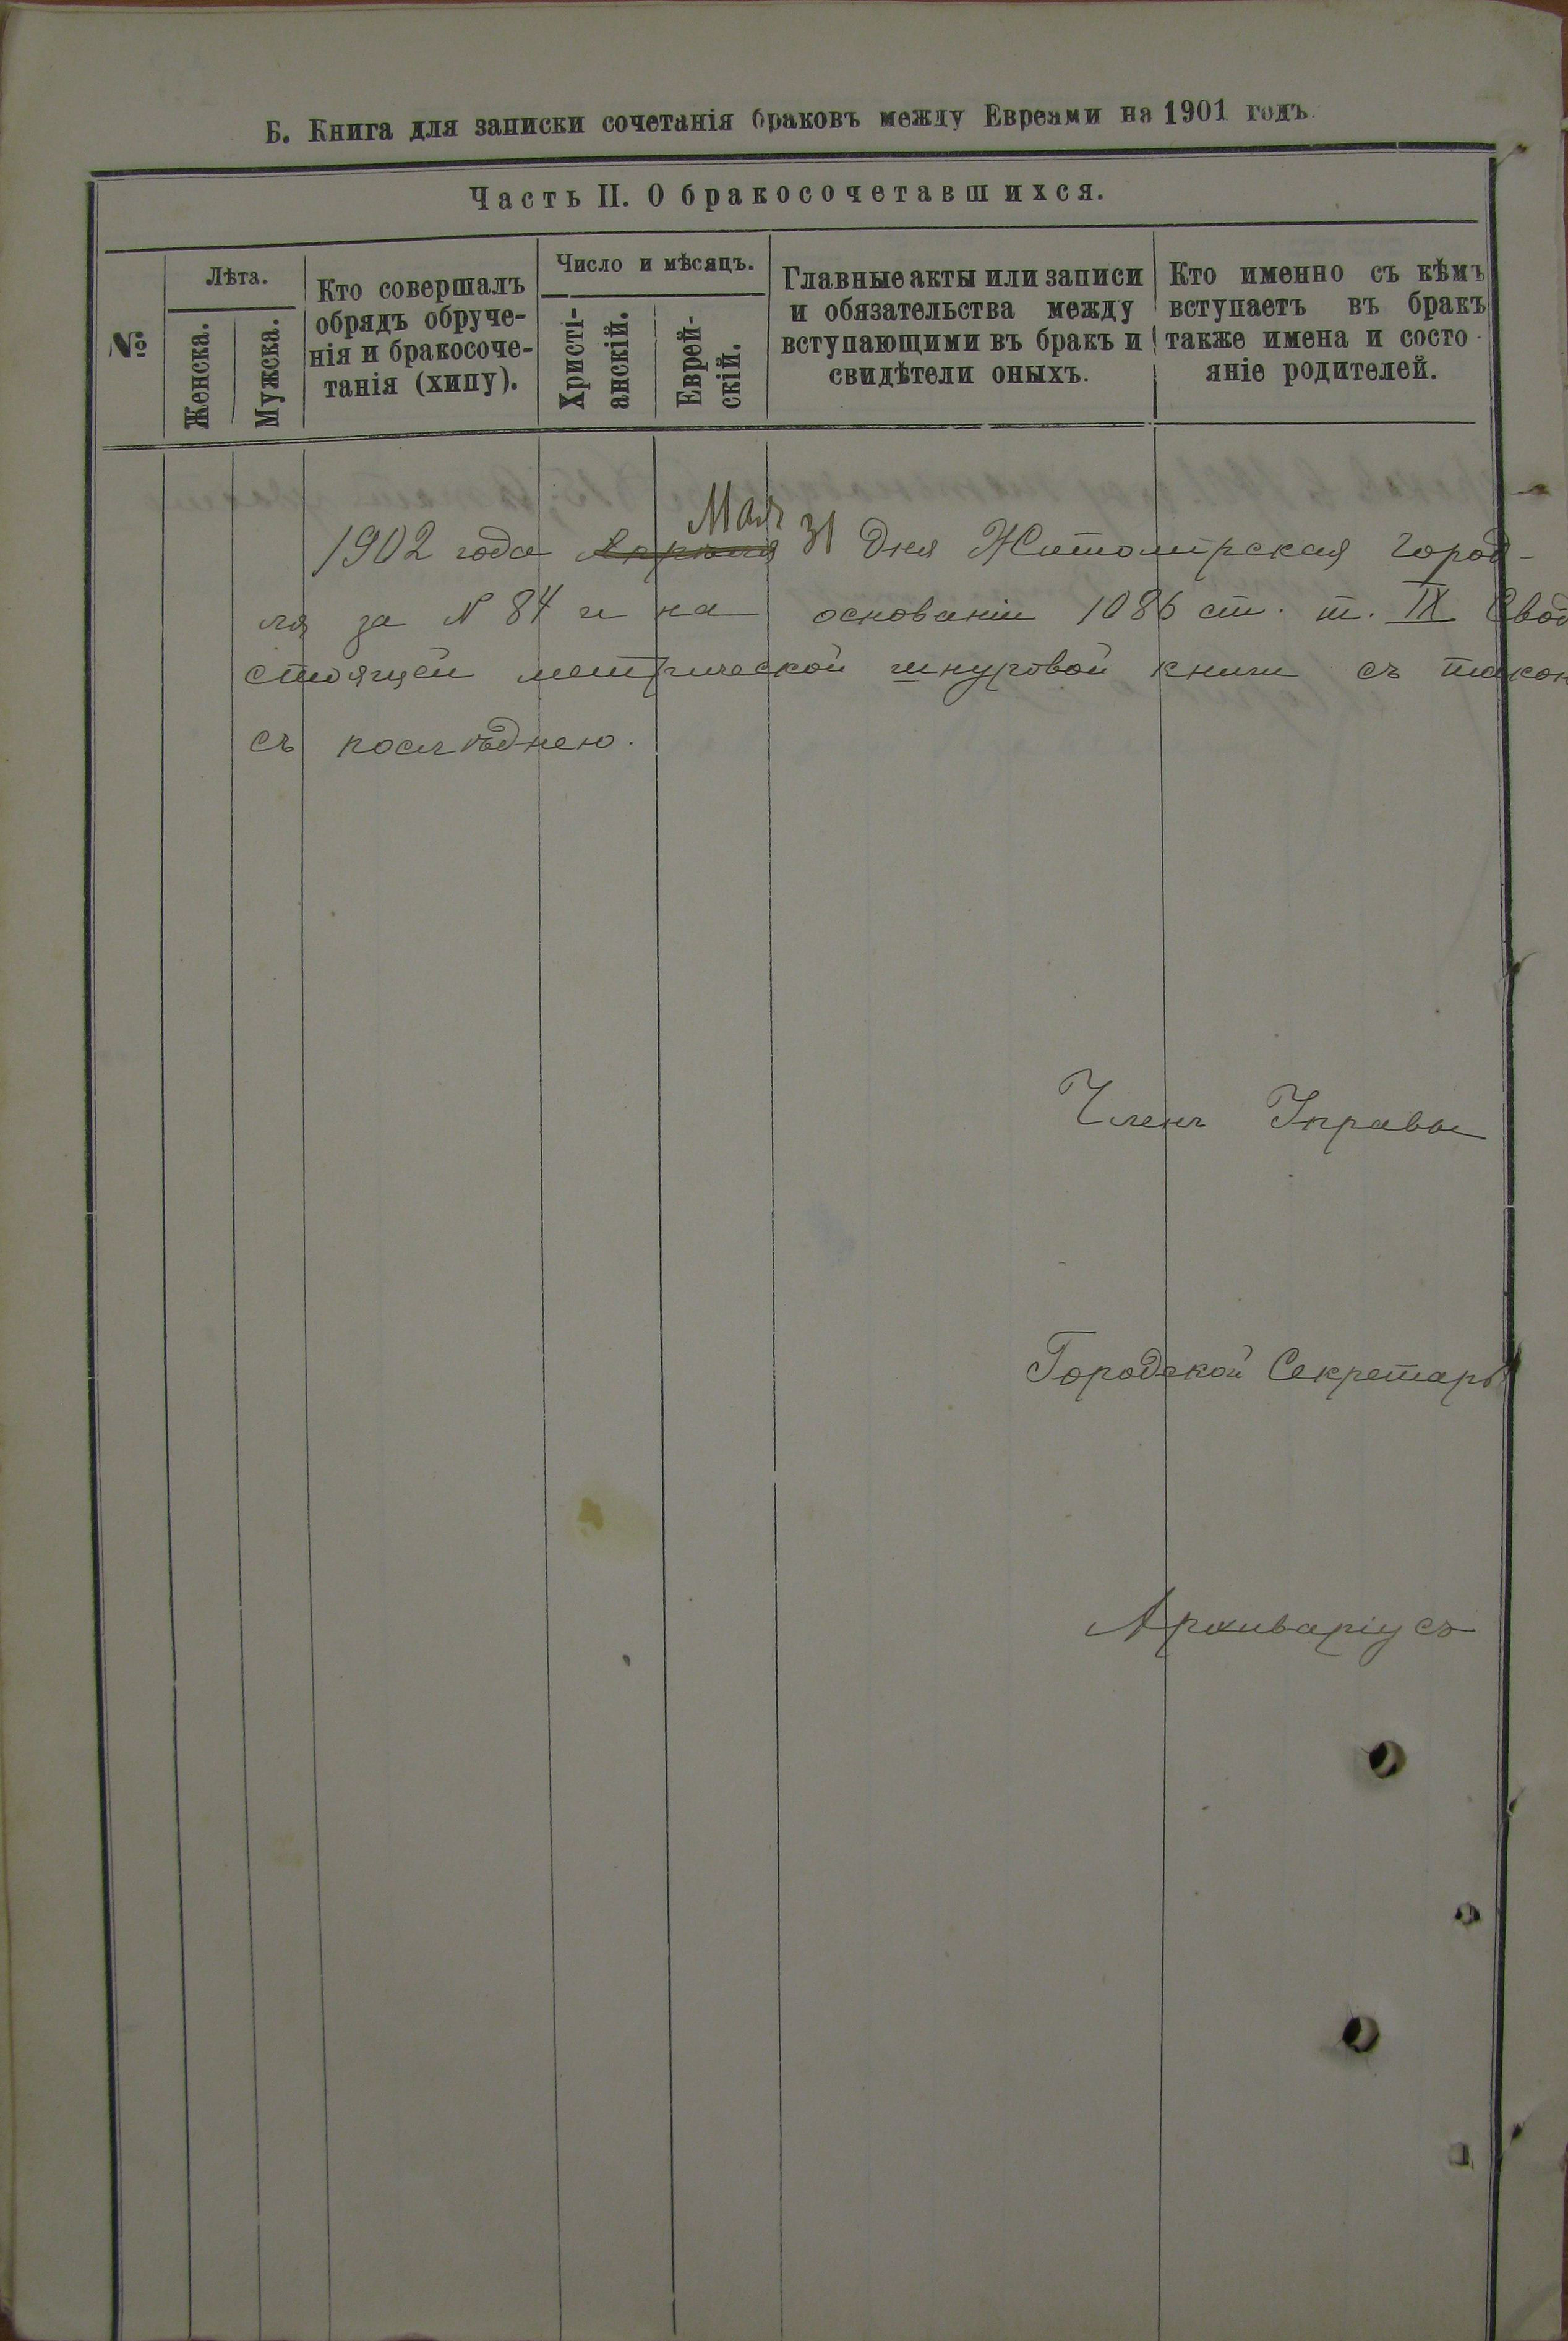 Б. Книга для записки сочетанія браковъ между Евреями на 1901 годъ
Часть II. О бракосочетавшихся.
№
Лѣта.
Женска.
Мужска.
Кто совершалъ
обрядъ обруче-
нія и бракосоче-
танія (хипу).
Число и мѣсяцъ.
Христі-
анскій.
Еврей-
скій.
Главные акты или записи
и обязательства между
вступающими въ бракъ и
свидѣтели оныхъ.
Кто именно съ кѣмъ
вступаетъ въ бракъ
также имена и состо-
яніе родителей.
Мая
1902 года Апрѣля 31 дня Житомірская Город-
ля за N 84 и на основаніи 1086 ст. т. IX Свод
стоящей метрической шнуровой книги съ такон
съ послѣднею.
Членъ Управы
Городской Секретарь
Архиваріусъ